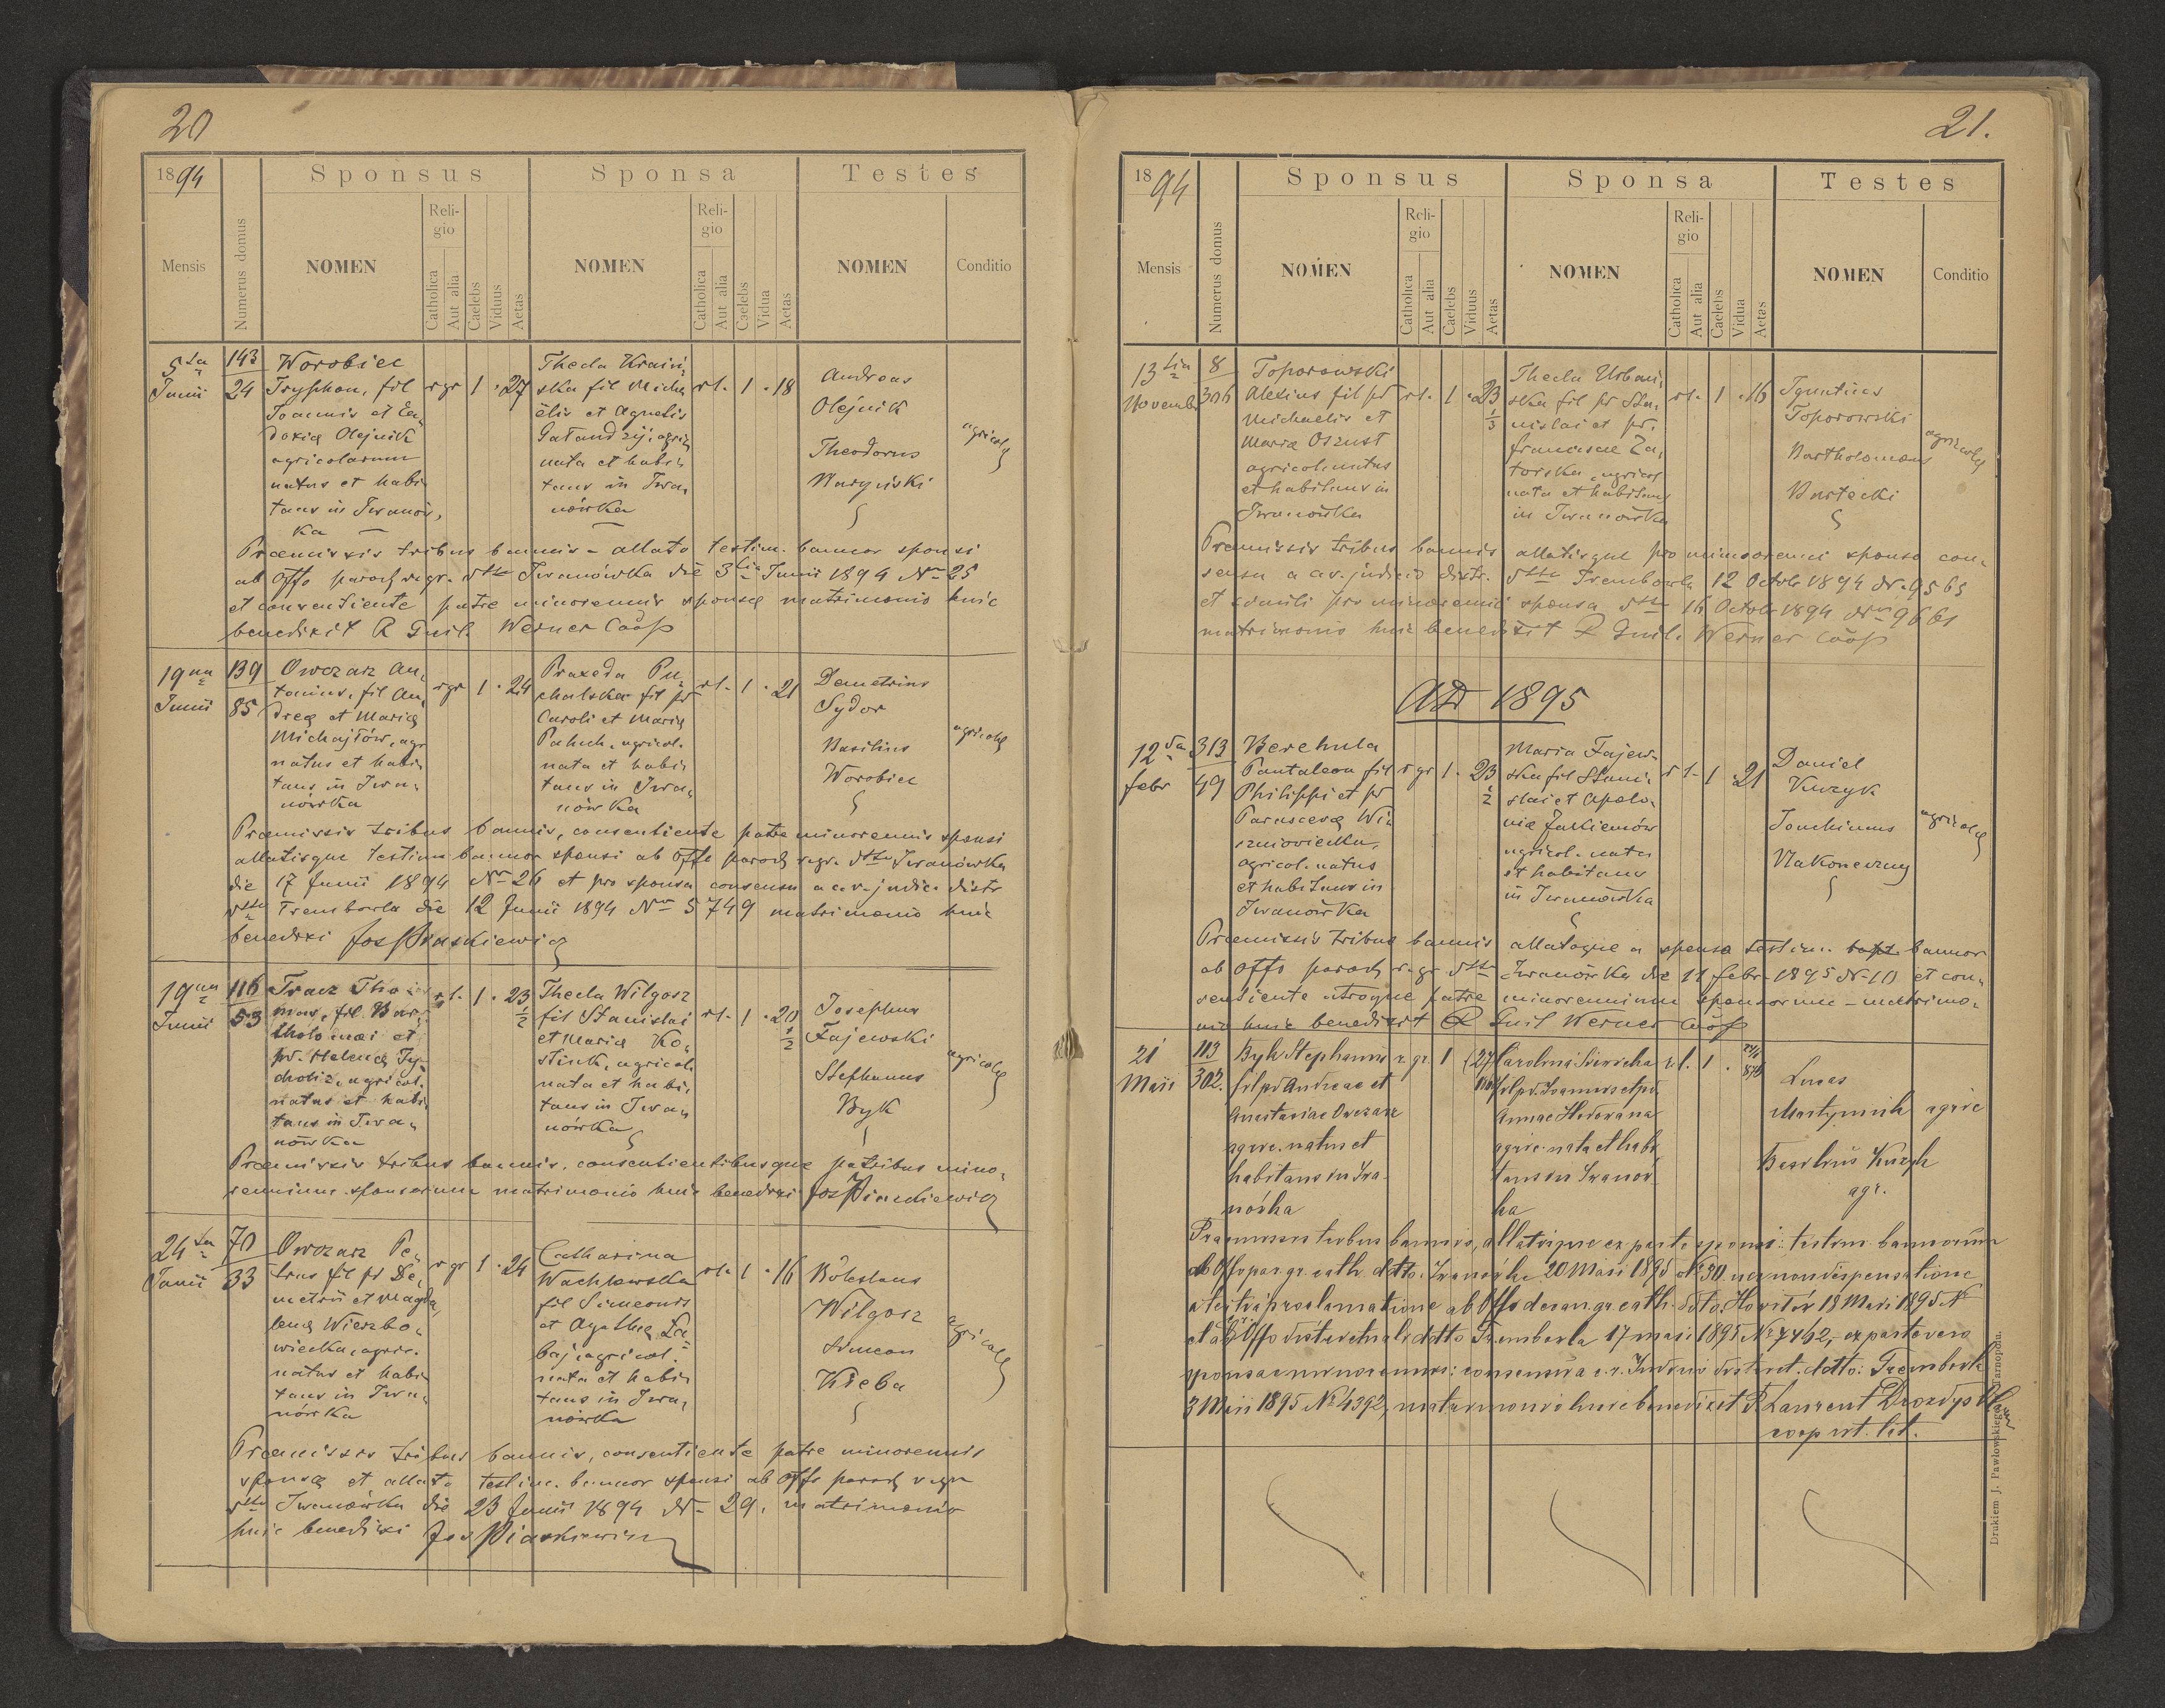 20
1894
Sponsus
Sponsa
Testes
Mensis
Numerus domus
NOMEN
Reli-
gio
Catholica
Aut alia
Caelebs
Viduus
Aetas
NOMEN
Reli-
gio
Catholica
Aut alia
Caelebs
Vidua
Aetas
NOMEN
Conditio
5ta
Junii
143
24
Worobiec
Tryphon, fil
Joannis et Eu
doxiæ Olejnik
agricolarum
natus et habi
tans in Iwanów,
ka
rgr 1 27
Thecla Kraiń
ska fil Micha
ëlis et Agnetis
nata et habi
tans in Iwa
nówka
rl. 1 18
Andreas
Olejnik
Theodorus
agricolæ
Præmissis tribus bannis – allato testim. bannor sponsi
ab Offo paroch rgr. dtto Iwanówka die 3tia Junii 1894 Nr 25
et consentiente patre minorennis sponsæ matrimonio huic
benedixit R Guil. Werner Coop
19na
Junii
139
85
Owczarz An
tonius, fil An
dreæ et Mariæ
Michajłów, agr
natus et habi
tans in Iwa
nówka
rgr 1 24
Praxeda Pu
chalska fil pr
Caroli et Mariæ
Pahuch, agricol.
nata et habi
tans in Iwa
nówka
rl. 1 21
Demetrius
Sydor
Basilius
Worobiec
agricolæ
Præmissis tribus bannis, consentiente patre minorennis sponsi
allatisque testim bannor sponsi ab Offo paroch rgr. dtto Iwanówka
die 17 Junii 1894 Nr 26 et pro sponsa consensu a c.r. judic. distr
dtto Trembowla die 12 Junii 1894 Nr 5749 matrimonio huic
benedixi Jos Piaskiewicz
19na
Junii
116
53
Tracz Tho
mas, fil Bar
tholomæi et
pr. Helenæ Ty
choliz, agricol.
natus et habi
tans in Iwa
nówka
rl. 1 23 1/2
Thecla Wilgosz
fil Stanislai
et Mariæ Ko
stiuk, agricol.
nata et habi
tans in Iwa
nówka
rl. 1 20 1/2
Josephus
Fajewski
Stephanus
Byk
agricolæ
Præmissis tribus bannis, consentientibusque patribus mino
rennium sponsorum matrimonio huic benedixi Jos Piaskiewicz
24ta
Junii
70
33
Owczarz Pe
trus fil pr De
metrii et Magda
lenæ Wierzbo
wiecka, agric.
natus et habi
tans in Iwa
nówka
rgr 1 24
Catharina
Wachlowska
fil Simeonis
et Agathæ Ła
baj, agricol.
nata et habi
tans in Iwa
nówka
rl. 1 16
Boleslaus
Wilgosz
Simeon
Kieba
agricolæ
Præmissis tribus bannis, consentiente patre minorennis
sponsæ et allato testim. bannor sponsi ab Offo paroch rgr
dtto Iwanówka die 23 Junii 1894 Nr 29. matrimonio
huic benedixi Jos Piaskiewicz
21.
1894
Sponsus
Sponsa
Testes
Mensis
Numerus domus
NOMEN
Reli-
gio
Catholica
Aut alia
Caelebs
Viduus
Aetas
NOMEN
Reli-
gio
Catholica
Aut alia
Caelebs
Vidua
Aetas
NOMEN
Conditio
13tia
Novembr
8
306
Toporowski
Alexius fil pr
Michaelis et
Mariæ Oszust
agricol. natus
et habitans in
Iwanówka
rl. 1 23 1/3
Thecla Urbań
ska fil pr Sta
nislai et pr.
Franciscæ Za
torska, agricol
nata et habitans
in Iwanówka
rl. 1 16
Ignatius
Toporowski
Bartholomæus
Bartecki
agricolæ
Præmissis tribus bannis allatisque pro minorenni sponso con
sensu a c.r. judicio distr. dtto Trembowla 12 Octobr 1894 Nr 9565
et simili pro minorenni sponsa dtto 16 Octobr 1894 Nr 9661
matrimonio huic benedixit R Guil. Werner Coop
AD 1895
12da
Febr
313
49
Berehula
Pantaleon fil
Philippi et pr
Parascevæ Wi
szniowiecka,
agricol. natus
et habitans in
Iwanówka
rgr 1 23 1/2
Maria Fajew
ska fil Stani
slai et Apolo
niæ Jaskiemów
agricol. nata
et habitans
in Iwanówka
rl. 1 21
Daniel
Kuzyk
Joachimus
Nakoneczny
agricolæ
Præmissis tribus bannis allatoque a sponso testim. bapt. bannor
ab Offo paroch rgr dtto Iwanówka die 11 Febr. 1895 Nr 10 et con
sentiente utroque patre minorennium sponsorum – matrimo
nio huic benedixit R Guil Werner Coop
21
Maii
113
302.
Byk Stephanus
fil pr Andreae et
Anastasiae Owczarz
agric. natus et
habitans in Iwa
nówka
r. gr. 1 27
fil pr. Joannis et pr.
Annae
agric. nata et habi
tans in Iwanów
ka
r. l. 1
Lucas
Martyniuk
agric
Basilius Kuzyk
agr.
Praemissis tribus bannis, allatisque ex parte sponsi: testim bannorum
ab Offo par gr. cath. dtto: Iwanówka 20 Maii 1895 Nr 30. nec non dispensatione
a tertia proclamatione ab Offo decan. gr. cath. dtto. 18 Maii 1895 N
et ab Offo districtuali dtto Trembowla 17 maii 1895 Nr 7462, ex parte vero
sponsae minorennis: consensu a c.r. Judicio district. dtto: Trembowla
3 Maii 1895 Nr 4392, matrimonio huic benedixit P. Laurent Drozdyski
coop rit. lat.
Drukiem J. Pawłowskiego w Tarnopolu.